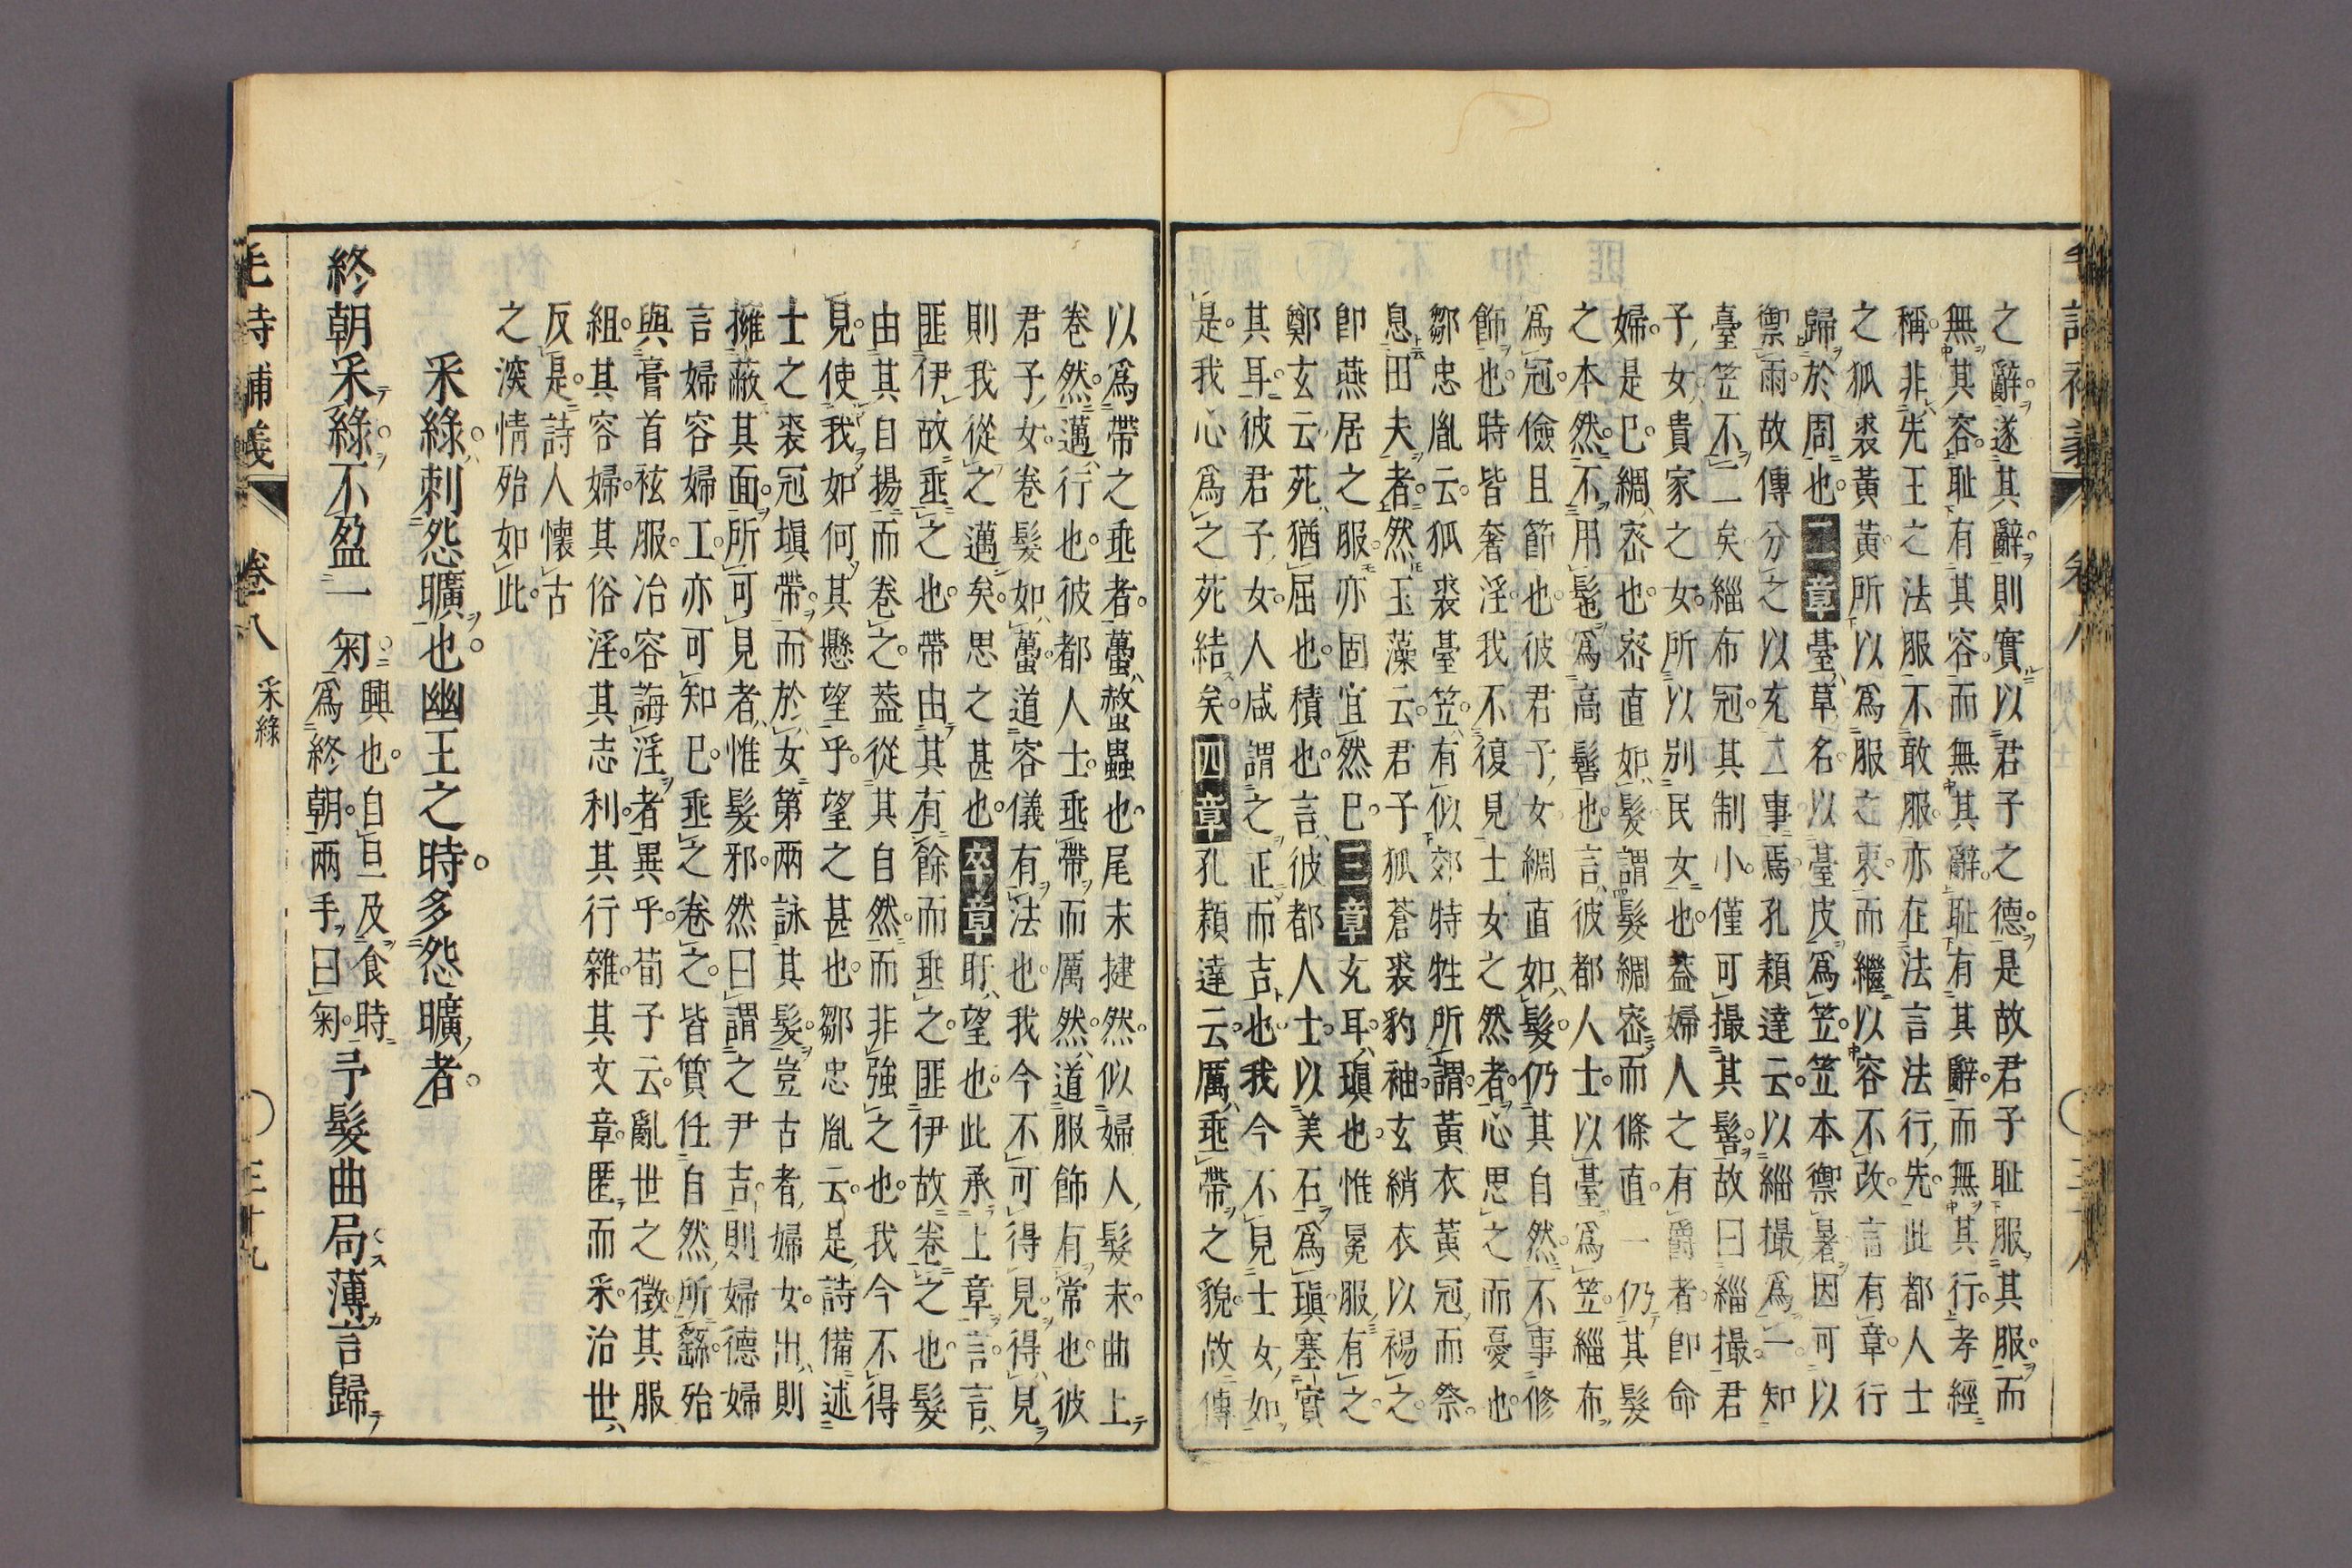 之辭遂其辭則實以君子之德是故君子耻服其服而
無其容耻有其容而無其辭耻有其辭而無其行孝經
稱非先王之法服不敢服亦在法言法行先此都人士
之狐裘黃黃所以爲服之衷而繼以容不改言有章行
歸於周也二章臺草名以臺皮爲笠笠本禦暑因可以
禦雨故傳分之以充二事焉孔穎達云以緇撮爲一知
臺笠不一矣緇布冠其制小僅可撮其髻故曰緇撮君
子女貴家之女所以別民女也蓋婦人之有爵者卽命
婦是已綢密也密直如髮謂髮綢密而條直一仍其髮
之本然不用髢爲高髻也言彼都人士以臺爲笠緇布
爲冠儉且節也彼君子女綢直如髮仍其自然不事修
飾也時皆奢淫我不復見士女之然者心思之而憂也
鄒忠胤云狐裘臺笠有似郊特牲所謂黃衣黃冠而祭
息田夫者然玉藻云君子狐蒼裘豹袖玄綃衣以裼之
卽燕居之服亦固宜然已三章充耳瑱也惟冕服有之
鄭玄云苑猶屈也積也言彼都人士以美石爲瑱塞實
其耳彼君子女人咸謂之正而吉也我今不見士女如
是我心爲之苑結矣四章孔穎達云厲垂帶之貌故傳
以爲帶之垂者蠆螫蟲也尾末揵然似婦人髮末曲上
卷然邁行也彼都人士垂帶而厲然道服飾有常也彼
君子女卷髮如蠆道容儀有法也我今不可得見得見
則我從之邁矣思之甚也卒章盱望也此承上章言言
匪伊故垂之也帶由其有餘而垂之匪伊故卷之也髮
由其自揚而卷之蓋從其自然而非強之也我今不得
見使我如何其懸望乎望之甚也鄒忠胤云是詩備述
士之裘冠瑱帶而於女第兩詠其髮豈古者婦女出則
擁蔽其面所可見者惟髮邪然曰謂之尹吉則婦德婦
言婦容婦工亦可知已垂之卷之皆質任自然所繇殆
與膏首袨服冶容誨淫者異乎荀子云亂世之徵其服
組其容婦其俗淫其志利其行雜其文章匿而采治世
反是詩人懷古
之深情殆如此
采綠刺怨曠也幽王之時多怨曠者
終朝采綠不盈一匊興也自旦及食時爲終朝兩手曰匊予髮曲局薄言歸
毛詩補義 卷八 采綠 三十九